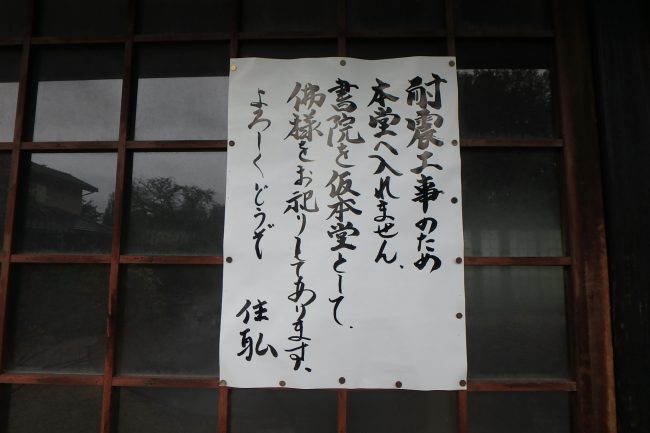 耐震工事のため
本堂へ入れません、
書院を仮本堂として、
佛様をお祀りしてあります、
よろしくどうぞ
住職